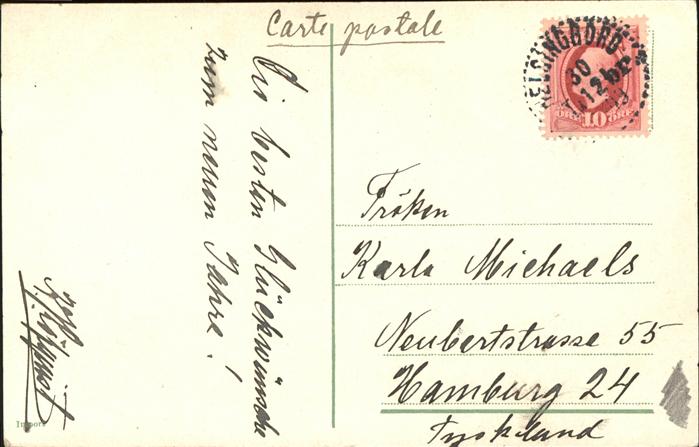 Carte postale
HELSINGBORG
30
12
10
ÖRE ÖRE
Die besten Glückwünsche
zum neuen Jahre!
Fröken
Karla Michaels
Neubertstrasse 55
Hamburg 24
Tyskland
Import